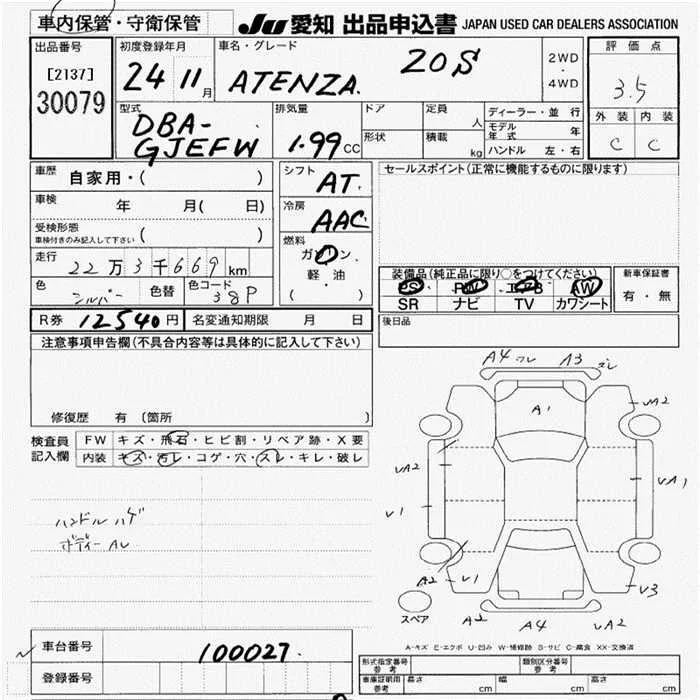 車内保管・守衛保管 JU 愛知 出品申込書 JAPAN USED CAR DEALERS ASSOCIATION
出品番号
[2137]
30079
初度登録年月
24 11月
車名・グレード
ATENZA. 20S
2WD
・
4WD
評価点
3.5
外装 内装
C C
型式
DBA-
GJEFW
排気量
1.99 CC
ドア
形状
定員 人
積載 kg
ディーラー・並行
モデル年式 年
ハンドル 左・右
車歴 自家用・( )
車検 年 月( 日)
受検形態
車検付きのみ記入して下さい ( )
走行 22万3千669km
色 シルバー 色替 色コード 38P
シフト AT
冷房 AAC
燃料
ガソリン
軽・油
( )
セールスポイント(正常に機能するものに限ります)
装備品(純正品に限り○をつけてください)
PS PW エアB AW
SR ナビ TV カワシート
新車保証書
有・無
後日品
R券 12540円 名変通知期限 月 日
注意事項申告欄(不具合内容等は具体的に記入して下さい)
修復歴 有 〔箇所
検査員
記入欄
FW キズ・飛石・ヒビ割・リペア跡・X要
内装 キズ・汚レ・コゲ・穴・スレ・キレ・破レ
ハンドル ハゲ
ボディー AU
A4 A3
A1
UA2
UA2
U1
UA1
A2 U1
U3
A2 A4 UA2
スペア
A-キズ E-エクボ U-凹み W-補修跡 S-サビ C-腐食 XX-交換済
車台番号 100027.
登録番号
形式指定番号
参考
類別区分番号
参考
車庫証明用
参考
長さ cm 幅 cm 高さ cm